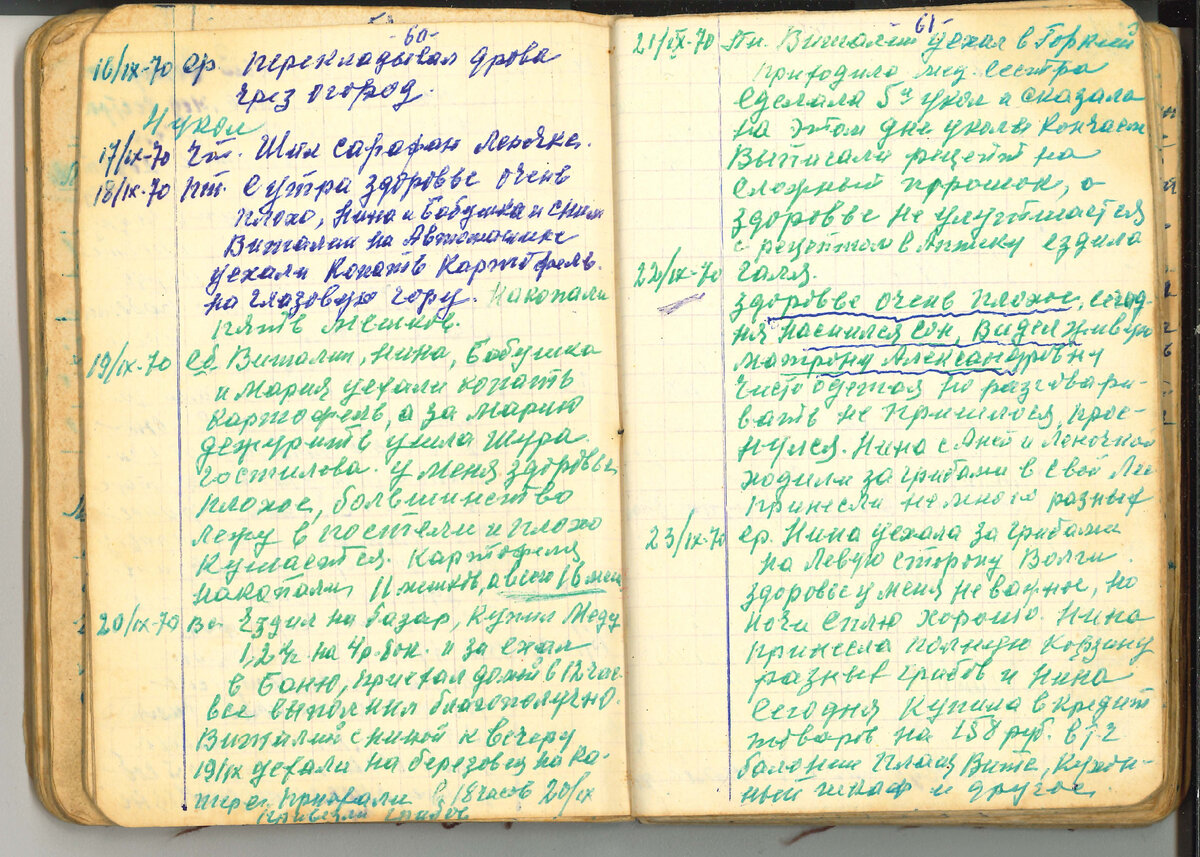 60
16/IX-70 ср. перекладывал дрова
чрез огород.
4 укол
17/IX-70 Чт. Шил сарафан Леночке.
18/IX-70 Пт. С утра здоровье очень
плохо, Нина и Бабушка и с ним
Виталий на Автомашине
уехали копать картофель
на глазовую гору. Накопали
пять мешков.
19/IX-70 Сб Виталий, Нина, Бабушка
и Мария уехали копать
картофель, а за Марию
дежурить ушла Шура
Гостилова. у меня здоровье
плохое, большинство
лежу в постели и плохо
кушается. Картофеля
накопали 11 мешков, а всего 16 меш
20/IX-70 Вс. Ездил на базар, купил Меду
1,2 кг на 4р-80к. и за ехал
в Баню, приехал домой в 12 час.
все выполнил благополучно.
Виталий с ниной к вечеру
19/IX уехали на березовец на ка-
тере, приехали в 18 часов 20/IX
привезли грибов
61
21/IX-70 Пн. Виталий уехал в Горький
приходила мед. сестра
сделала 5й укол и сказала
на этом дне уколы кончаем
Выписали рецепт на
сложный порошок, а
здоровье не улучшается
с рецептом в Аптеку ездила
22/IX-70 Галя.
здоровье очень плохое, сегод-
ня наснился сон, Видел живую
Матрону Александровну
чисто одетая но разговари-
вать не пришлося, прос-
нулся. Нина с Аней и Леночкой
ходили за грибами в свой Лес
принесли немного разных
23/IX-70 ср. Нина уехала за грибами
на Левую сторону Волги.
здоровье у меня не важное, но
ночи сплю хорошо. Нина
принесла полную корзину
разных грибов и Нина
Сегодня купила в кредит
товаров на 158 руб. в т.ч
балонию Плащ Вите, кухон-
ный шкаф и другое